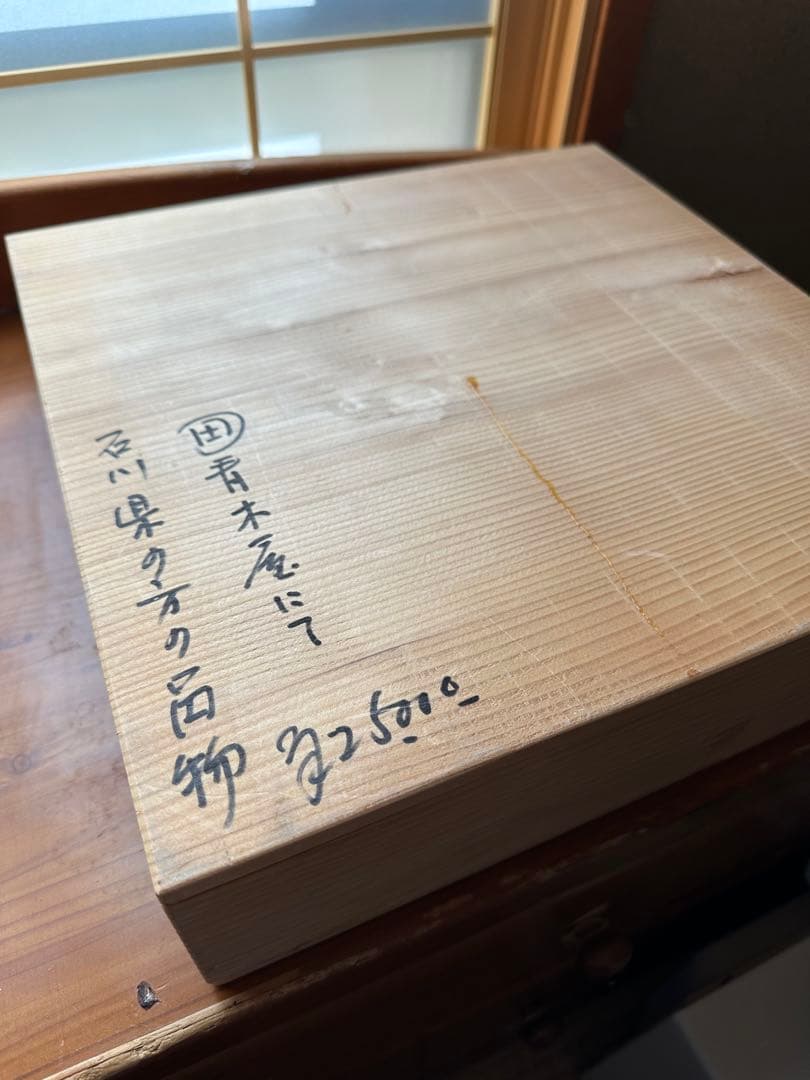 田青木屋にて
石川県の方の品物
¥25000